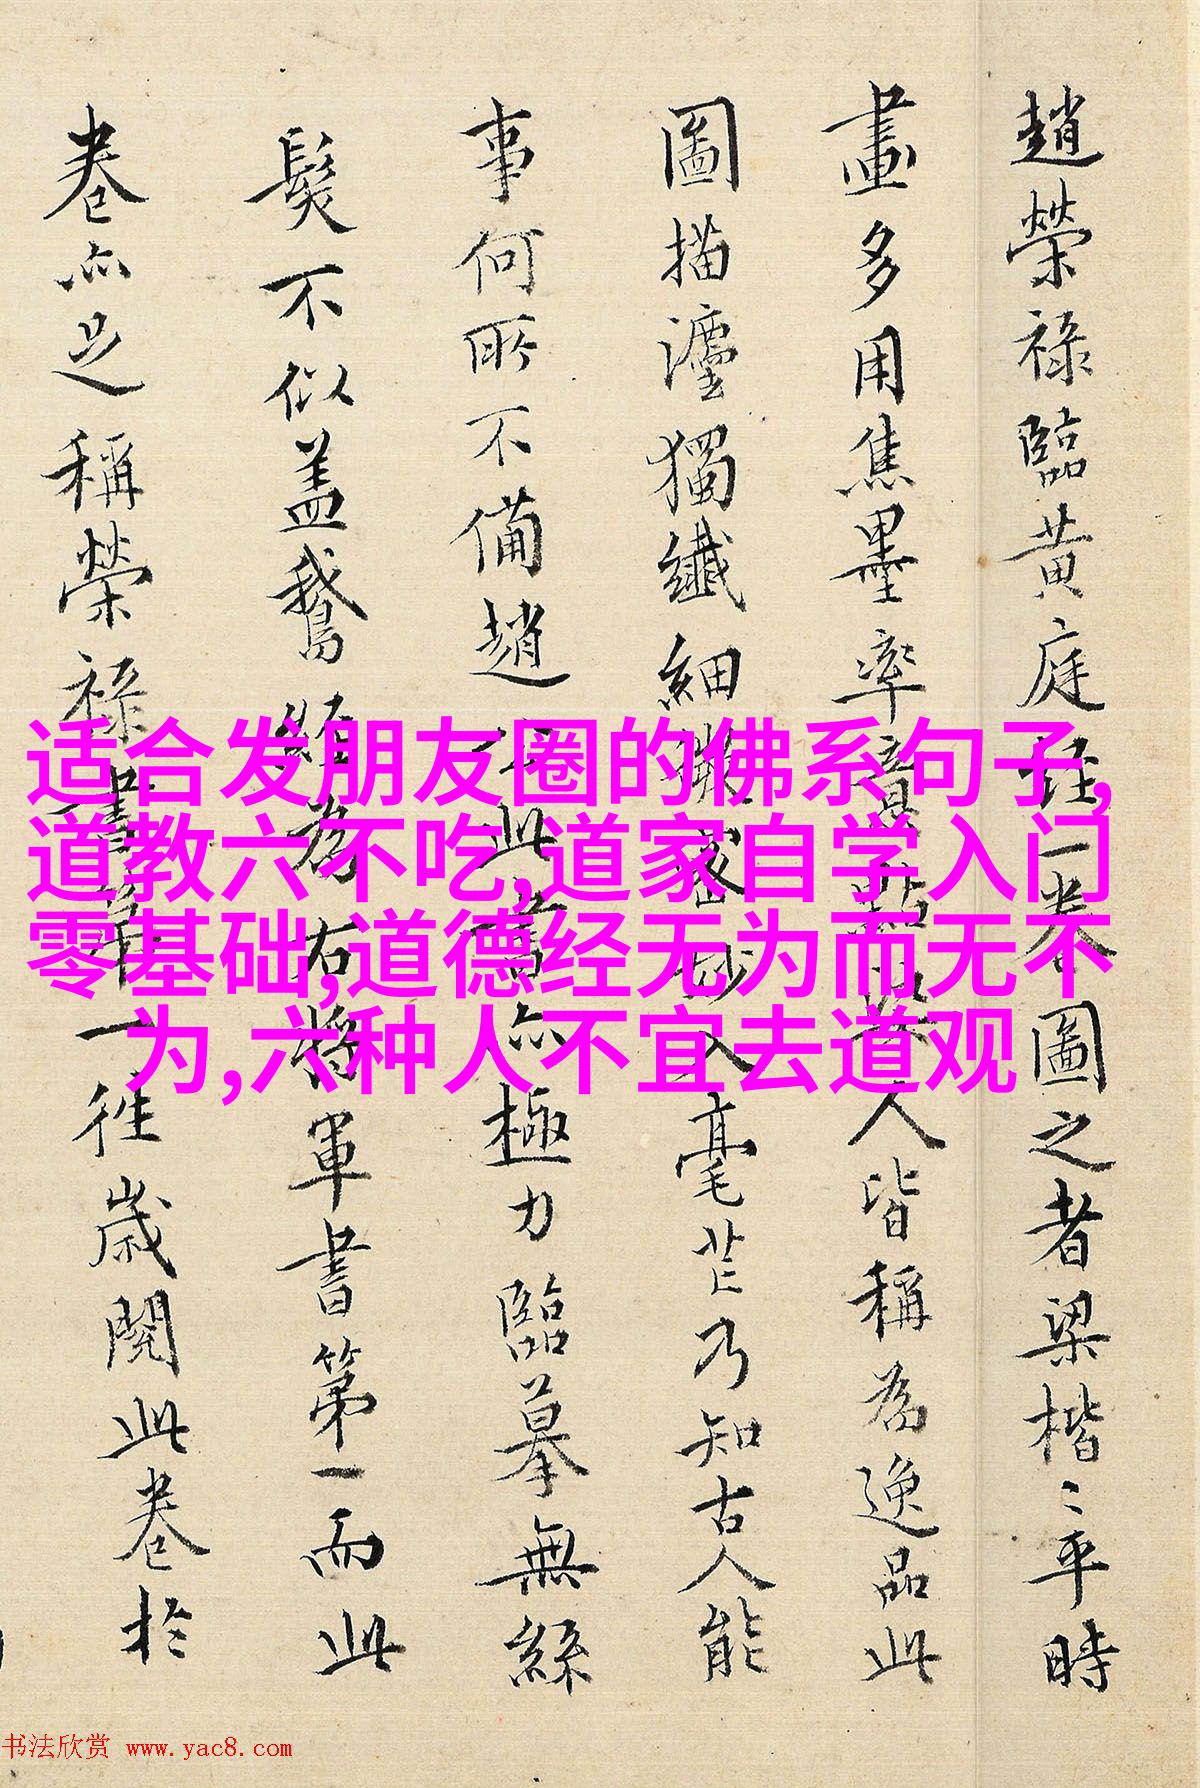 趙榮祿臨黃庭經一卷圖之者梁楷〻平時
畫多用焦墨率意點染人皆稱為逸品此
圖描灋獨纖細密妙入毫芒乃知古人能
事何所不備趙公此書亦極力臨摹無絲
髮不似蓋鵞經為右將軍書第一而此
卷亦足稱榮祿書第一往歲閱此卷於
适合发朋友圈的佛系句子,
道教六不吃,道家自学入门
零基础,道德经无为而无不
为,六种人不宜去道观
书法欣赏 www.yac8.com